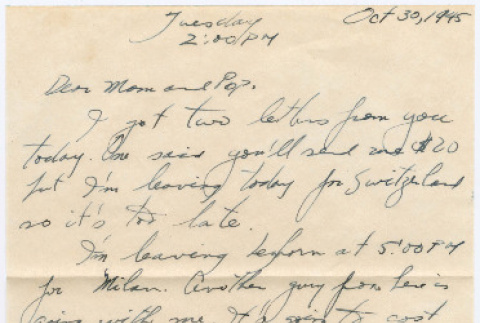 Tuesday Oct 30, 1945
2:00 PM
Dear Mom and Pop,
I got two letters from you
today. One said you'll send me $20
but I'm leaving today for Switzerland
so it's too late.
I'm leaving Leghorn at 5:00 PM
for Milan. Another guy from here is
going with me. It's going to cost